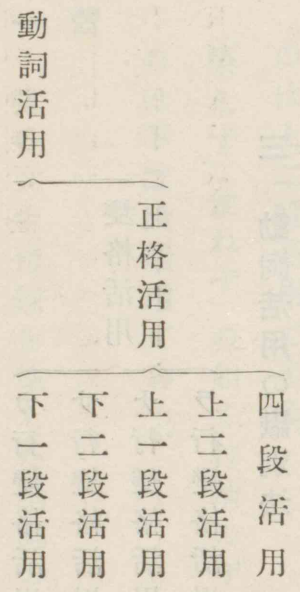 動詞活用
正格活用
四段活用
上二段活用
上一段活用
下二段活用
下一段活用